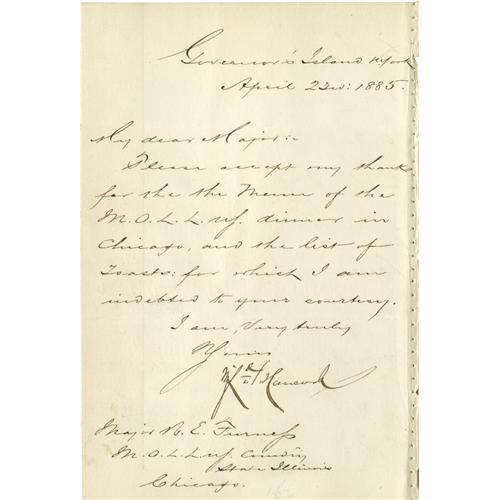 Governor's Island N York
April 23rd: 1885.
My dear Major:-
Please accept my thanks
for the the Menu of the
M.O.L.L.US. dinner in
Chicago, and the list of
Toasts: for which I am
indebted to your courtesy.
I am, Very truly
Yours
Hancock
Major R. E. Furness
M.O.L.L.US. Comdry
State Illinois
Chicago.